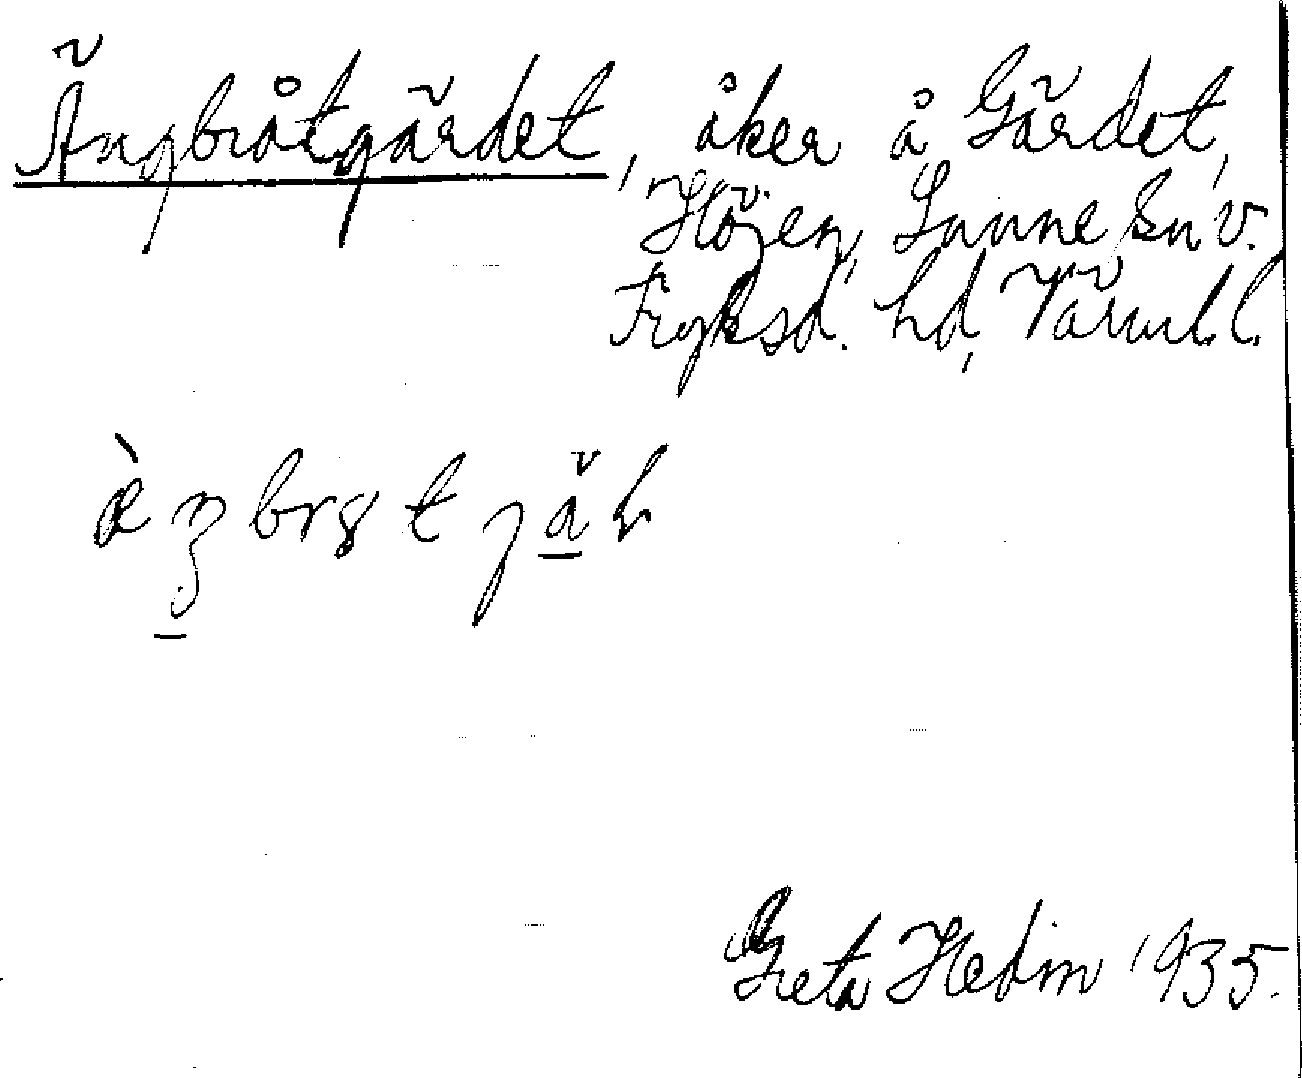 Ängbråtgärdet, åker å Gärdet,
Höjen, Sunne sn v.
Fryksd. hd, Värml. l.
Greta Hedin 1935.